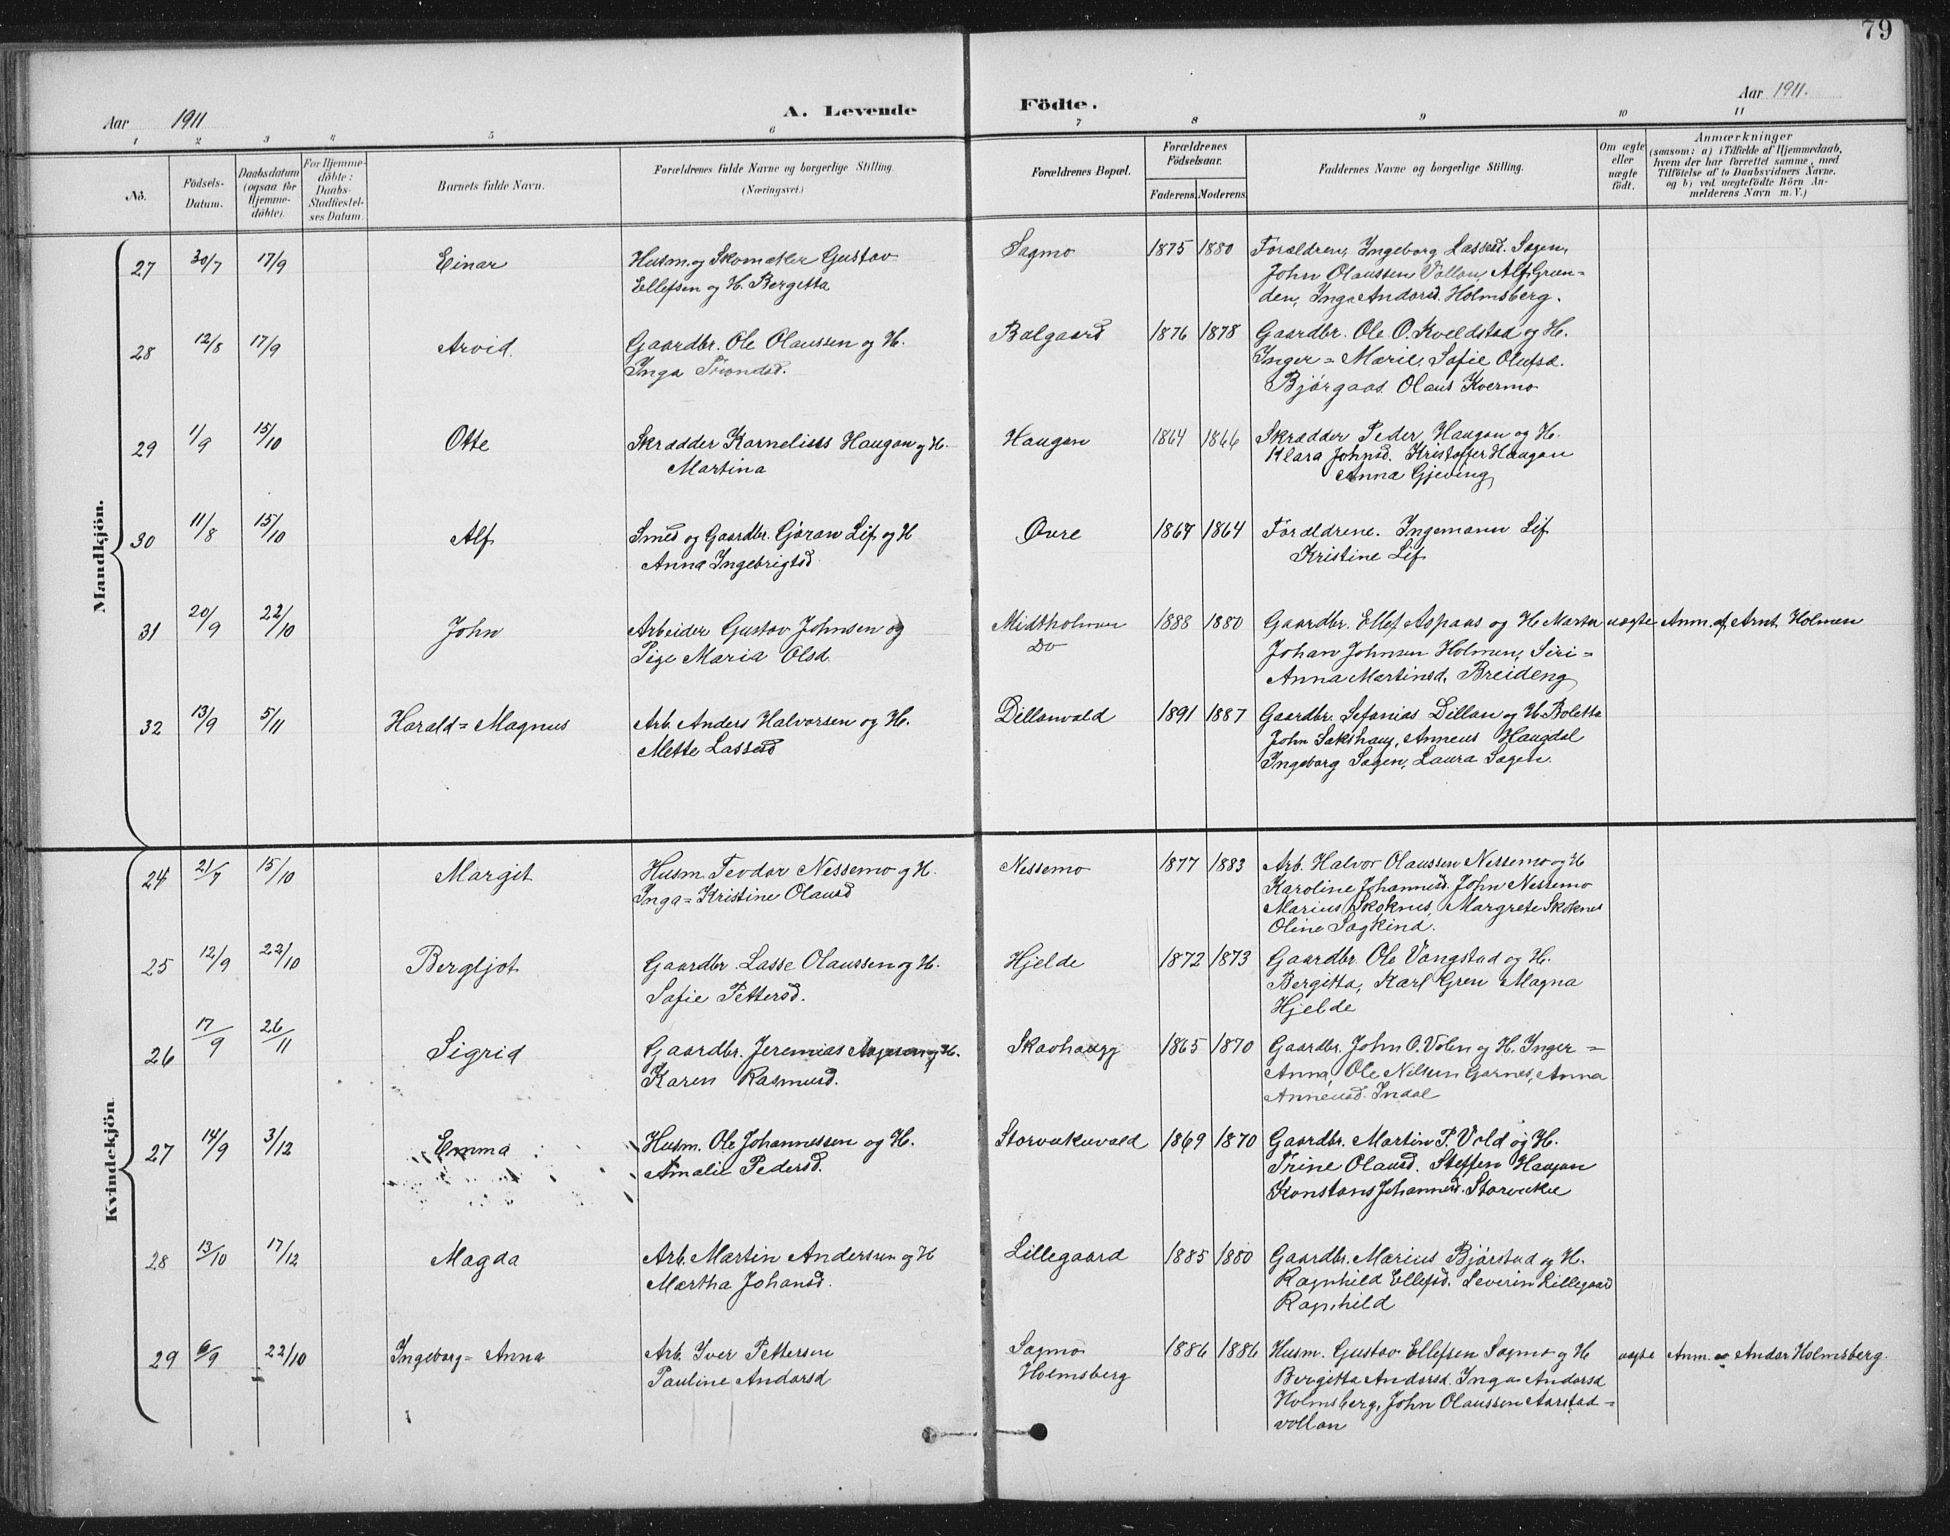 79
Aar 1911
A. Levende
Födte.
Aar 1911.
1 2 3 4 5 6 7 8 9 10 11
No.
Födsels-
Datum.
Daabsdatum
(ogsaa for
Hjemme-
döbte).
For Hjemme-
döbte:
Daabs-
Stadfæstel-
ses Datum.
Barnets fulde Navn.
Forældrenes fulde Navne og borgerlige Stilling
(Næringsvei.)
Forældrenes Bopæl.
Forældrenes
Födselsaar.
Faderens. Moderens.
Faddernes Navne og borgerlige Stilling.
Om ægte
eller
uægte
födt.
Anmærkninger
(saasom: a) i Tilfælde af Hjemmedaab,
hvem der har forrettet samme, med
Tilföielse af to Daabsvidners Navne,
og b) ved uægtefödte Börn An-
melderens Navn m. V.)
Mandkjön.
27 30/7 17/9 Einar
Husm. og Skomaker Gustav
Ellefsen og H. Bergitta
Sagmo 1875 1880
Forældrene, Ingeborg Lassesd. Sagen,
John Olaussen Vollan, Alf Grun=
den, Inga Andorsd. Holmsberg.
28 12/8 17/9 Arvid
Gaardbr. Ole Olaussen og H.
Inga Trondsd.
Balgaard 1876 1878
Gaardbr. Ole O. Kveldstad og H.
Inger = Marie, Sofie Olufsd.
Bjørgaas Olaus Kvermo
29 1/9 15/10 Otte
Skrædder Kornelius Haugan og H.
Martina
Haugan 1864 1866
Skrædder Peder Haugan og H.
Klara Johnsd. Kristoffer Haugan
Anna Gjeving
30 11/8 15/10 Alf
Smed og Gaardbr. Gøran Lif og H
Anna Ingebrigtsd
Øvre 1867 1864
Forældrene. Ingemann Lif
Kristine Lif
31 20/9 22/10 John
Arbeider Gustav Johnsen og
Pige Maria Olsd.
Midtholmen
Do
1888 1880
Gaardbr. Ellef Aspaas og H. Marta uægte Anm. af Arnt Holmen
Johan Johnsen Holmen, Siri=
Anna Martinsd. Breideng
32 13/9 5/11 Harald=Magnus
Arb. Anders Halvorsen og H.
Mette Lassesd
Dillanvald 1891 1887
Gaardbr. Sefanias Dillan og H. Boletta
John Sakshaug, Anneus Haugdal
Ingeborg Sagen, Laura Sagen.
Kvindekjön
24 21/7 15/10 Margit
Husm. Teodor Nessemo og H.
Inga=Kristine Olausd
Nessemo 1877 1883
Arb. Halvor Olaussen Nessemo og H
Karoline Johannesd. John Nessemo
Marius Skoknes, Margrete Skoknes
Oline Sagkind.
25 12/9 22/10 Bergljot
Gaardbr. Lasse Olaussen og H.
Sofie Pettersd.
Hjelde 1872 1873
Gaardbr Ole Vangstad og H.
Bergitta, Karl Gren Magna
Hjelde
26 17/9 26/11 Sigrid
Gaardbr. Jeremias og H.
Karen Rasmusd.
Skavhaugg 1865 1870
Gaardbr. John O. Volen og H. Inger=
Anna, Ole Nilsen Garnes, Anna
Anneusd. Indal
27 14/9 3/12 Emma
Husm. Ole Johannessen og H.
Amalie Pedersd.
Storvukuvald 1869 1870
Gaardbr. Martin P. Vold og H.
Trine Olausd. Steffen Haugan
Konstans Johannesd. Storvuku
28 13/10 17/12 Magda
Arb. Martin Anderssen og H
Martha Johansd.
Lillegaard 1885 1880
Gaardbr. Marius Bjørstad og H.
Ragnhild Ellefsd. Severin Lillegaard
Ragnhild
29 6/9 22/10 Ingeborg= Anna
Arb. Iver Pettersen
Pauline Andorsd
Sagmo
Holmsberg
1886 1886
Husm. Gustav Ellefsen Sagmo og H uægte Anm. av Andor Holmsberg.
Bergitta Andorsd. Inga Andorsd
Holmsberg, John Olaussen Aarstad=
vollan